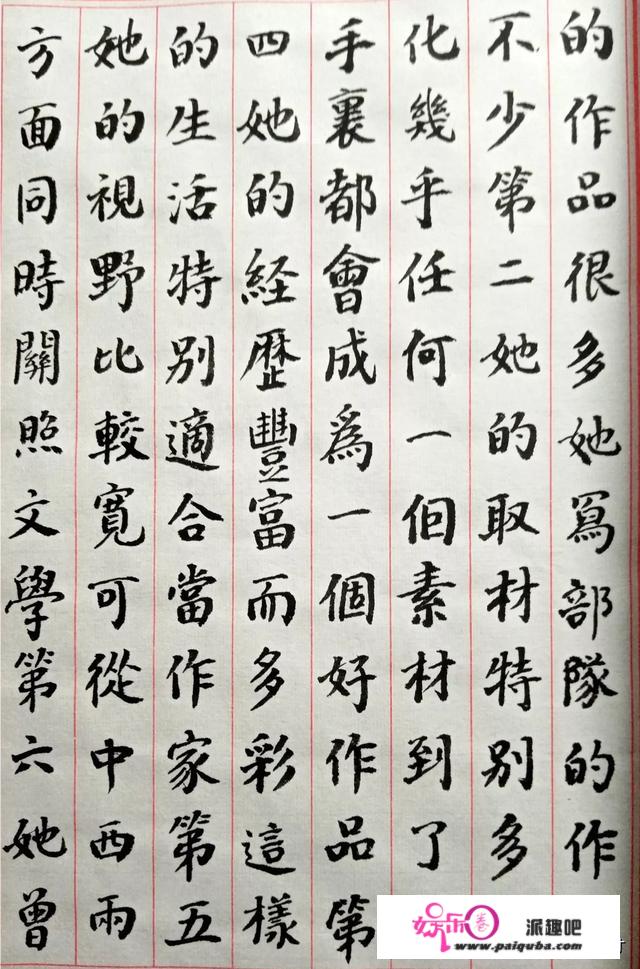 的作品很多她寫部隊的作
不少第二她的取材特別多
化幾乎任何一個素材到了
手裏都會成爲一個好作品第
四她的経歷豐富而多彩這樣
的生活特別適合當作家第五
她的視野比較寬可從中西兩
方面同時關照文學第六她曾
娱乐圈 派趣吧
www.paiquba.com